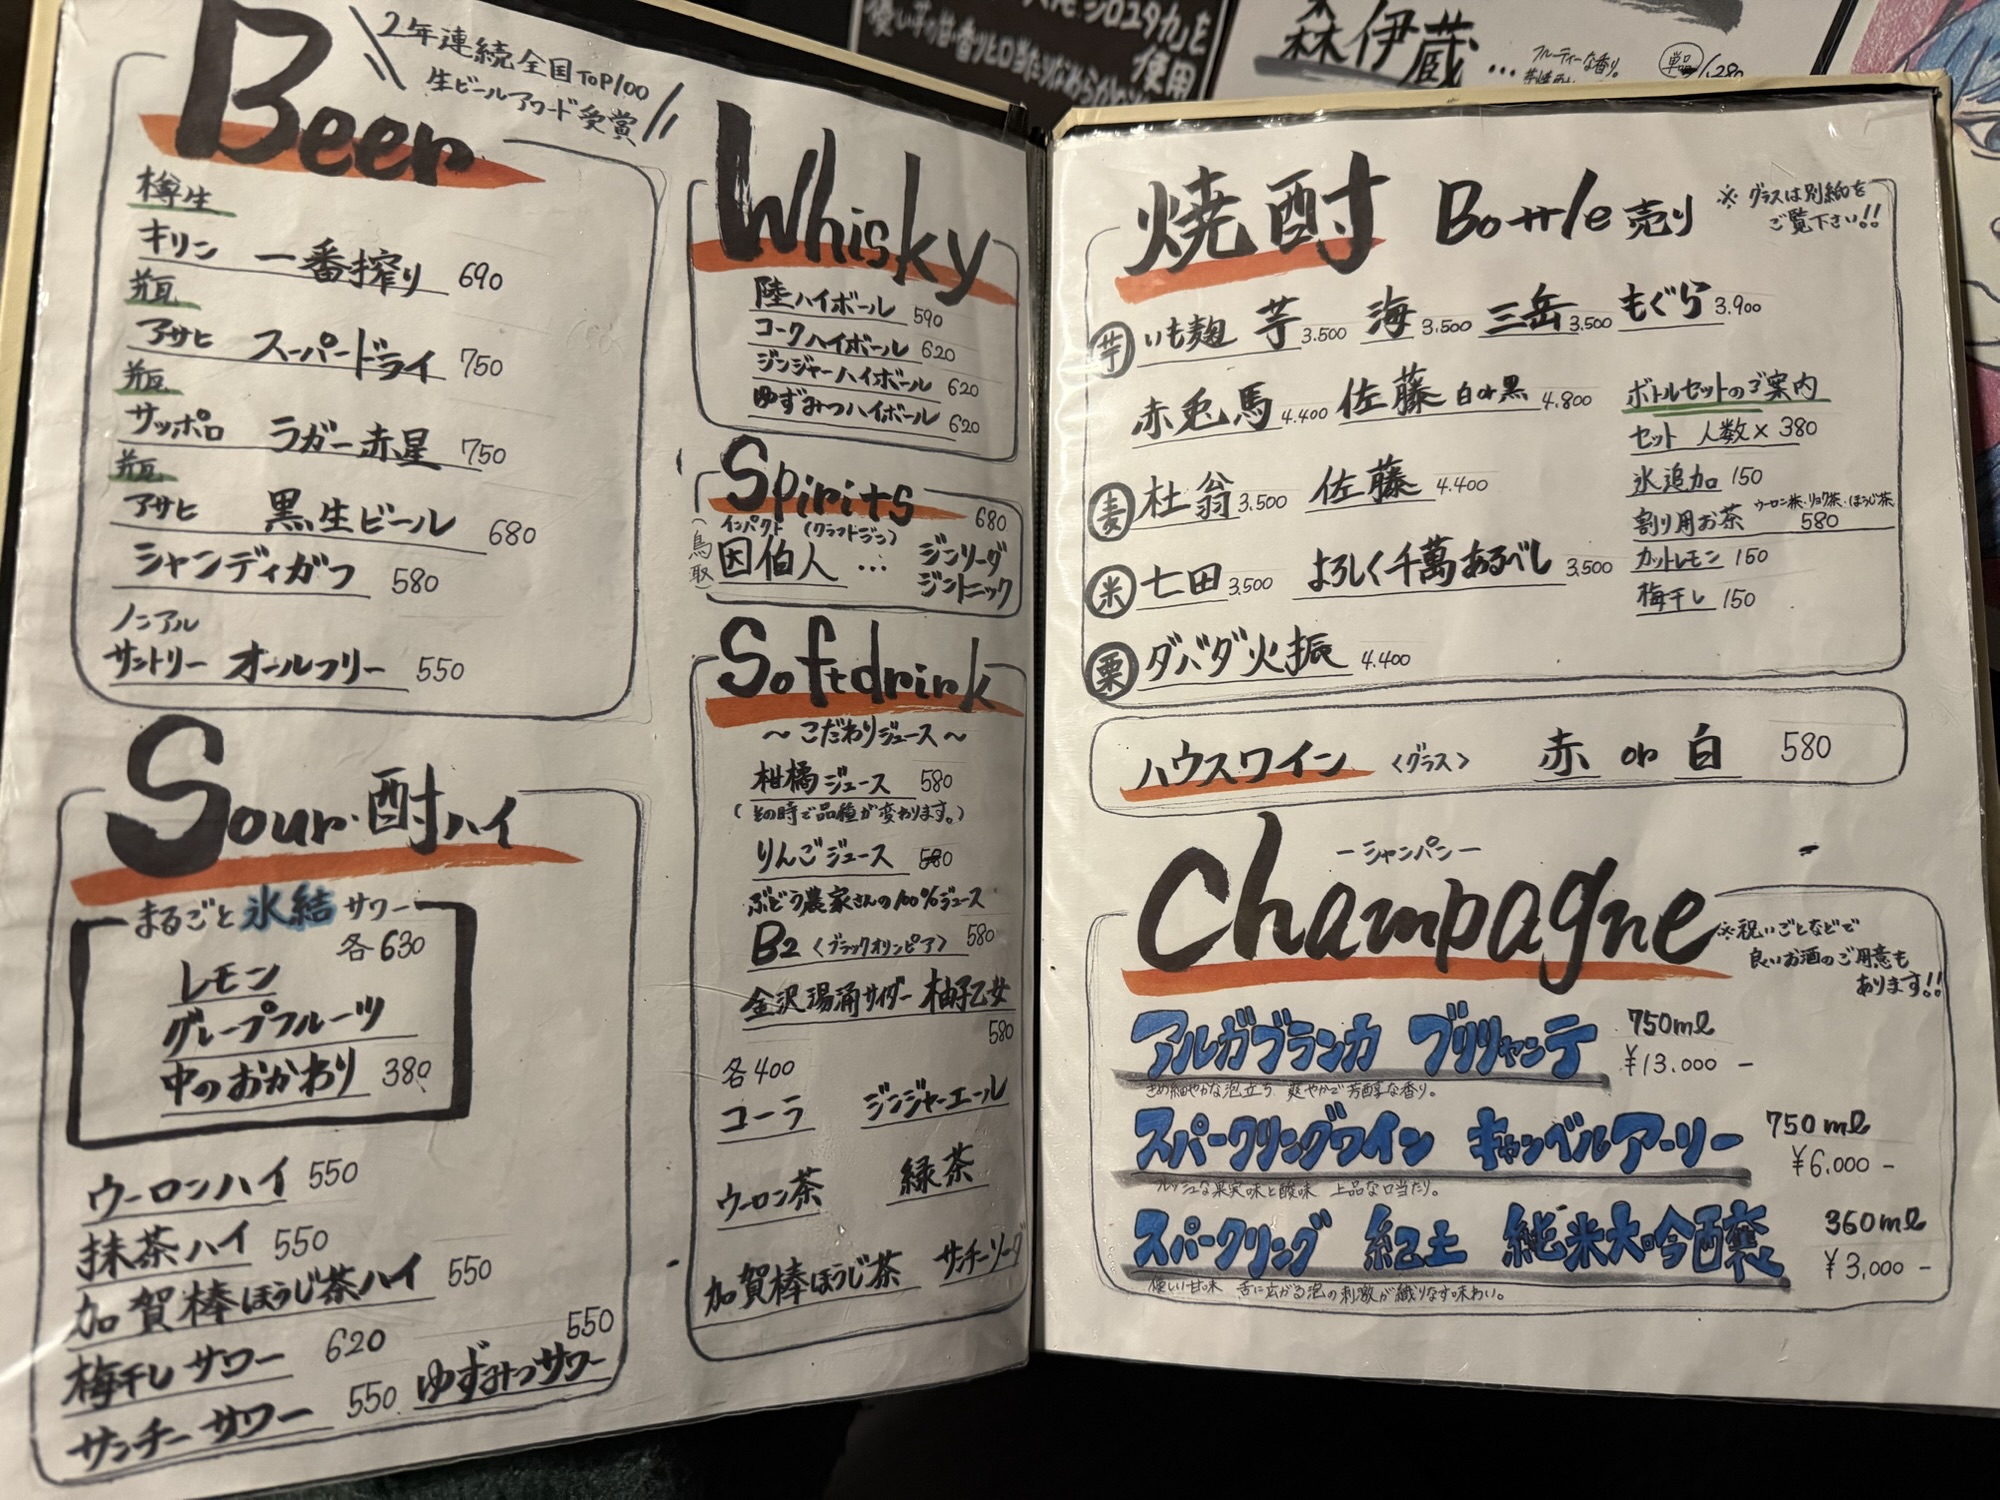 シロユタカ」を
使用
優しい芋の甘い香りと口当たりなめらか
森伊蔵…
フルーティーな香り。
単品 1,280
Beer
2年連続全国TOP100
生ビールアワード受賞
樽生
キリン 一番搾り 690
瓶
アサヒ スーパードライ 750
瓶
サッポロ ラガー赤星 750
瓶
アサヒ 黒生ビール 680
シャンディガフ 580
ノンアル
サントリー オールフリー 550
Sour・酎ハイ
まるごと氷結サワー
各630
レモン
グレープフルーツ
中のおかわり 380
ウーロンハイ 550
抹茶ハイ 550
加賀棒ほうじ茶ハイ 550
梅干しサワー 620
サンチーサワー 550
ゆずみつサワー 550
Whisky
陸ハイボール 590
コークハイボール 620
ジンジャーハイボール 620
ゆずみつハイボール 620
Spirits
680
インパクト (クラフトジン)
鳥取 因伯人 … ジンソーダ
ジントニック
Softdrink
〜こだわりジュース〜
柑橘ジュース 580
(その時で品種が変わります。)
りんごジュース 580
ぶどう農家さんの100%ジュース
B2〈ブラックオリンピア〉 580
金沢湯涌サイダー 柚子乙女
580
各400
コーラ ジンジャーエール
ウーロン茶 緑茶
加賀棒ほうじ茶 サンチーソーダ
焼酎 Bottle売り
※グラスは別紙を
ご覧下さい!!
芋 いも麹 芋 3.500 海 3.500 三岳 3.500 もぐら 3.900
赤兎馬 4.400 佐藤 白or黒 4.800
麦 杜翁 3.500 佐藤 4.400
米 七田 3.500 よろしく千萬あるべし 3.500
栗 ダバダ火振 4.400
ボトルセットのご案内
セット 人数×380
氷追加 150
ウーロン茶・リョク茶・ほうじ茶
割り用お茶 580
カットレモン 150
梅干し 150
ハウスワイン 〈グラス〉 赤 or 白 580
ーシャンパンー
Champagne
※祝いごとなどで
良いお酒のご用意も
あります!!
アルガブランカ ブリリャンテ 750ml
¥13.000-
きめ細やかな泡立ち 爽やかで芳醇な香り。
スパークリングワイン キャンベルアーリー 750ml
¥6.000-
フレッシュな果実味と酸味 上品な口当たり。
スパークリング 紀土 純米大吟醸 360ml
¥3,000-
優しい甘味 舌に広がる泡の刺激が織りなす味わい。